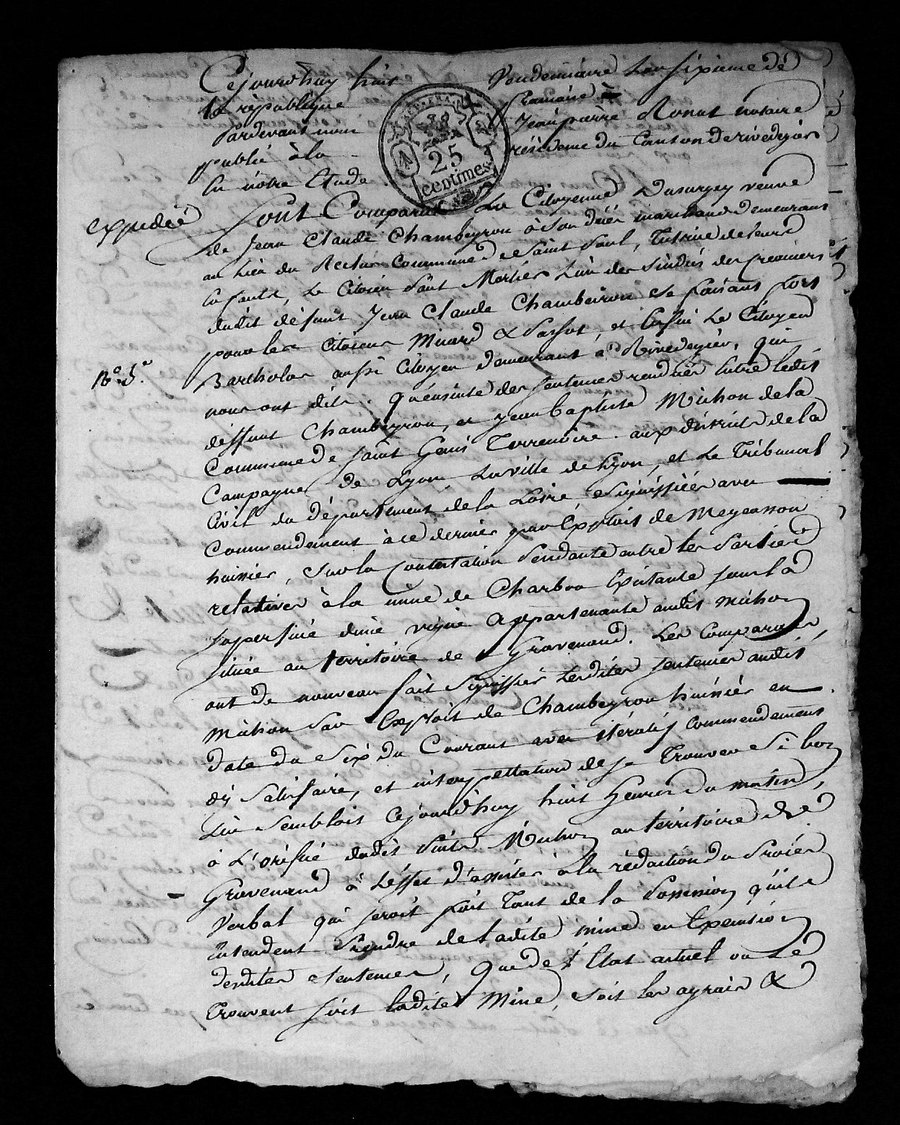 Cejourdhuy huit Vendemiaire L'an sixieme de
la republique francaise
Pardevant nous Jean pierre notaire
publié à la résidence du Canton de rivedegier
En notre Etude
25
centimes
expediée
Sont Comparus La Citoyenne veuve
de Jean Claude Chambeyron à Son décès marchand demeurant
au Lieu du Reclus Commune de Saint Paul, Tutrice de leurs
Enfants, Le Citoien Paul Mortier L'un des Sindics des creanciers
dudit défunt Jean Claude Chambeiron Se faisant fort
pour les Citoiens Micard & et Enfin Le Citoyen
Bartholot aussi Citoyen demeurant à Rivedegier, qui
No. 5.
nous ont dit: Qu'ensuite des Sentences rendues Entre Ledit
déffunt Chambeyron, et Jean baptiste Michon de la
Commune de Saint Genis Terrenoire aux districts de la
Campagne de Lyon La ville de Lyon, et Le Tribunal
Civil du département de la Loire Signiffiées avec
Commendement à ce dernier par Exploit de Meyensson
huissier, Sur la Contestation Pendante entre les Parties
relatives à la mine de Charbon Existante sous la
Superficie d'une vigne Appartenante audit Michon
Située au territoire de Gravenand. Les Comparants
ont de nouveau fait Signiffier Lesdites Sentences audit
Michon Par Exploit de Chambeyron huissier en
date du Six du Courant avec itératif Commendement
d'y Satisfaire, et interpellation de se Trouver Si bon
Lui Semblois Cejourd'huy huit Heures du matin
à L'orifice dudit Puits Michon au territoire de
Gravenand à L'effet d'assister à la rédaction du Procès
Verbal qui Seroit fait Tant de la Possession qu'ils
Entendent Prendre de Ladite mine en Execution
desdites Sentences, Que de L'Etat actuel ou Se
Trouvent Soit Ladite Mine, Soit les agrais &